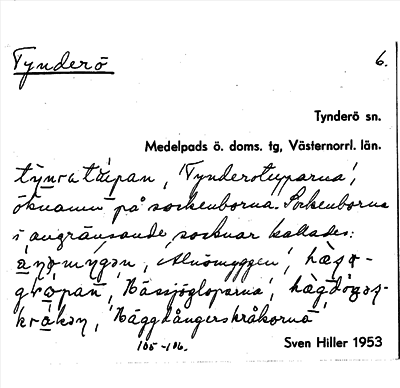 Tynderö 6.
Tynderö sn.
Medelpads ö. doms. tg, Västernorrl. län.
'Tynderötupparna',
öknamn på sockenborna. Sockenborna
i angränsande socknar kallades:
'Alnömyggen',
'Hässjögloparna',
'Häggdångerskråkorna'
105-106.
Sven Hiller 1953